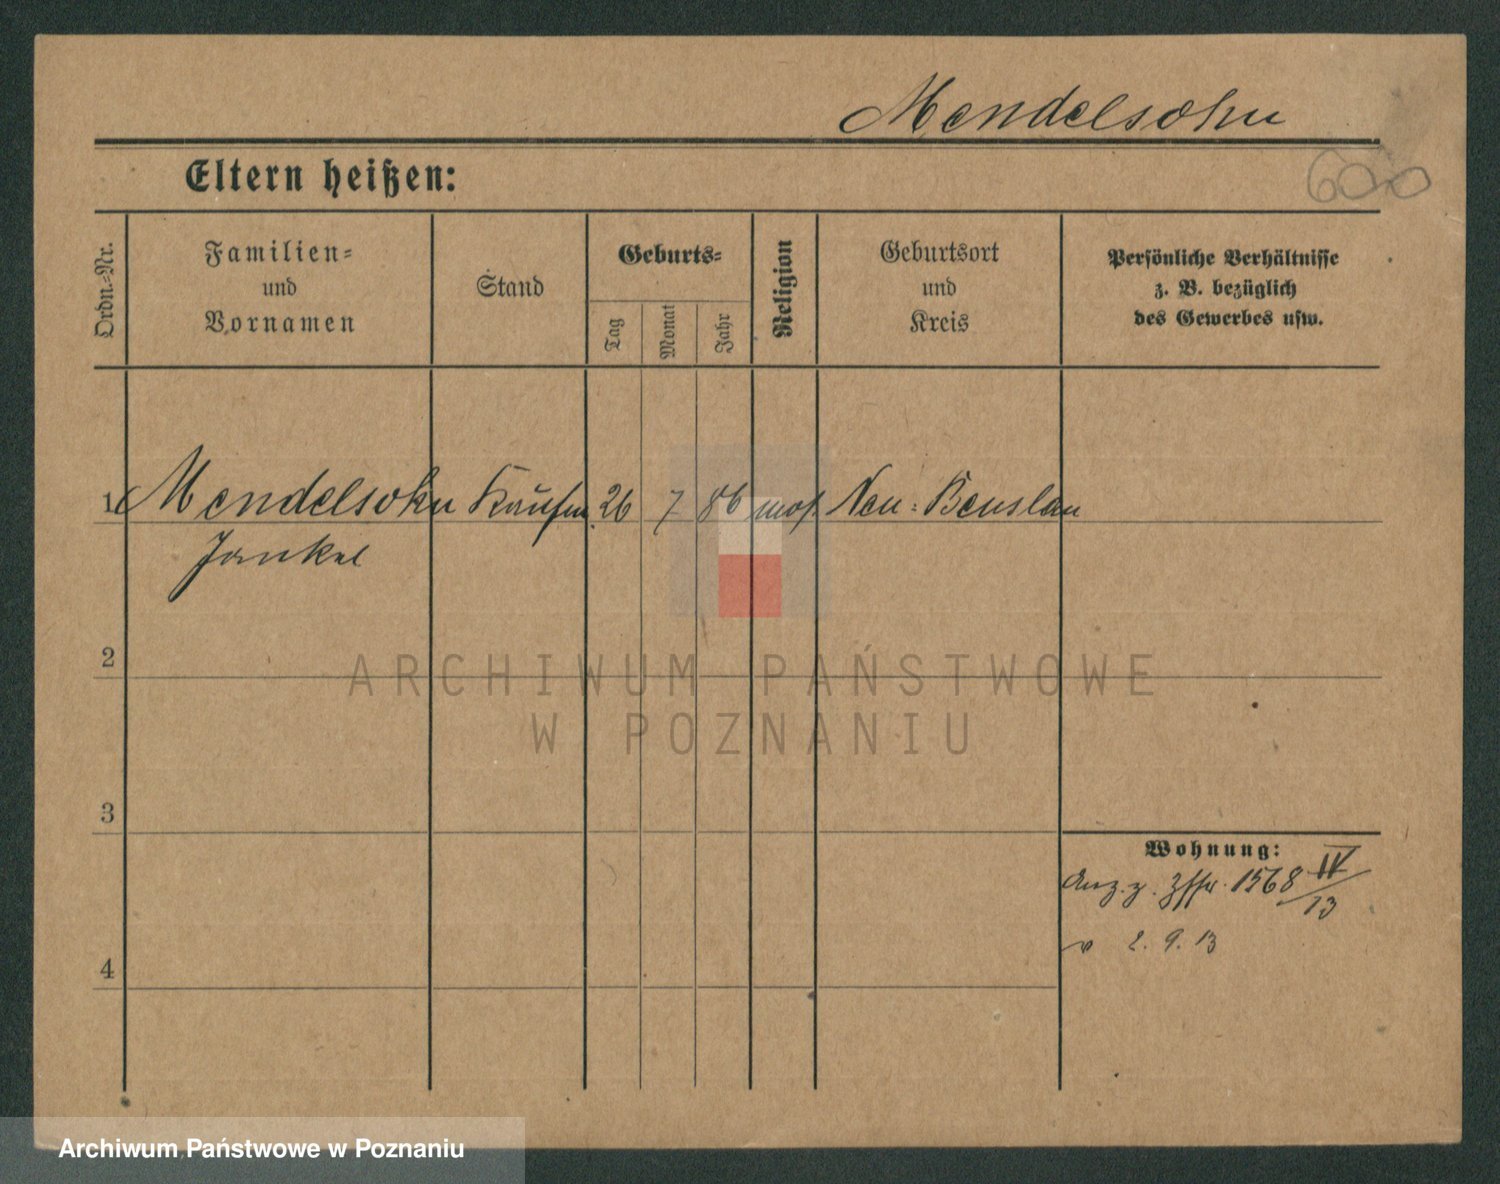 Mendelsohn
600
Eltern heißen:
Ordn.=Nr.
Familien=
und
Vornamen
Stand
Geburts=
Tag
Monat
Jahr
Religion
Geburtsort
und
Kreis
Persönliche Verhältnisse
z. B. bezüglich
des Gewerbes usw.
1 Mendelsohn Kaufm. 26 7 86 mos. Neu=Benslau
Jankel
2
3
4
Wohnung:
1568 IV/13
v 2. 9. 13
ARCHIWUM PAŃSTWOWE
W POZNANIU
Archiwum Państwowe w Poznaniu